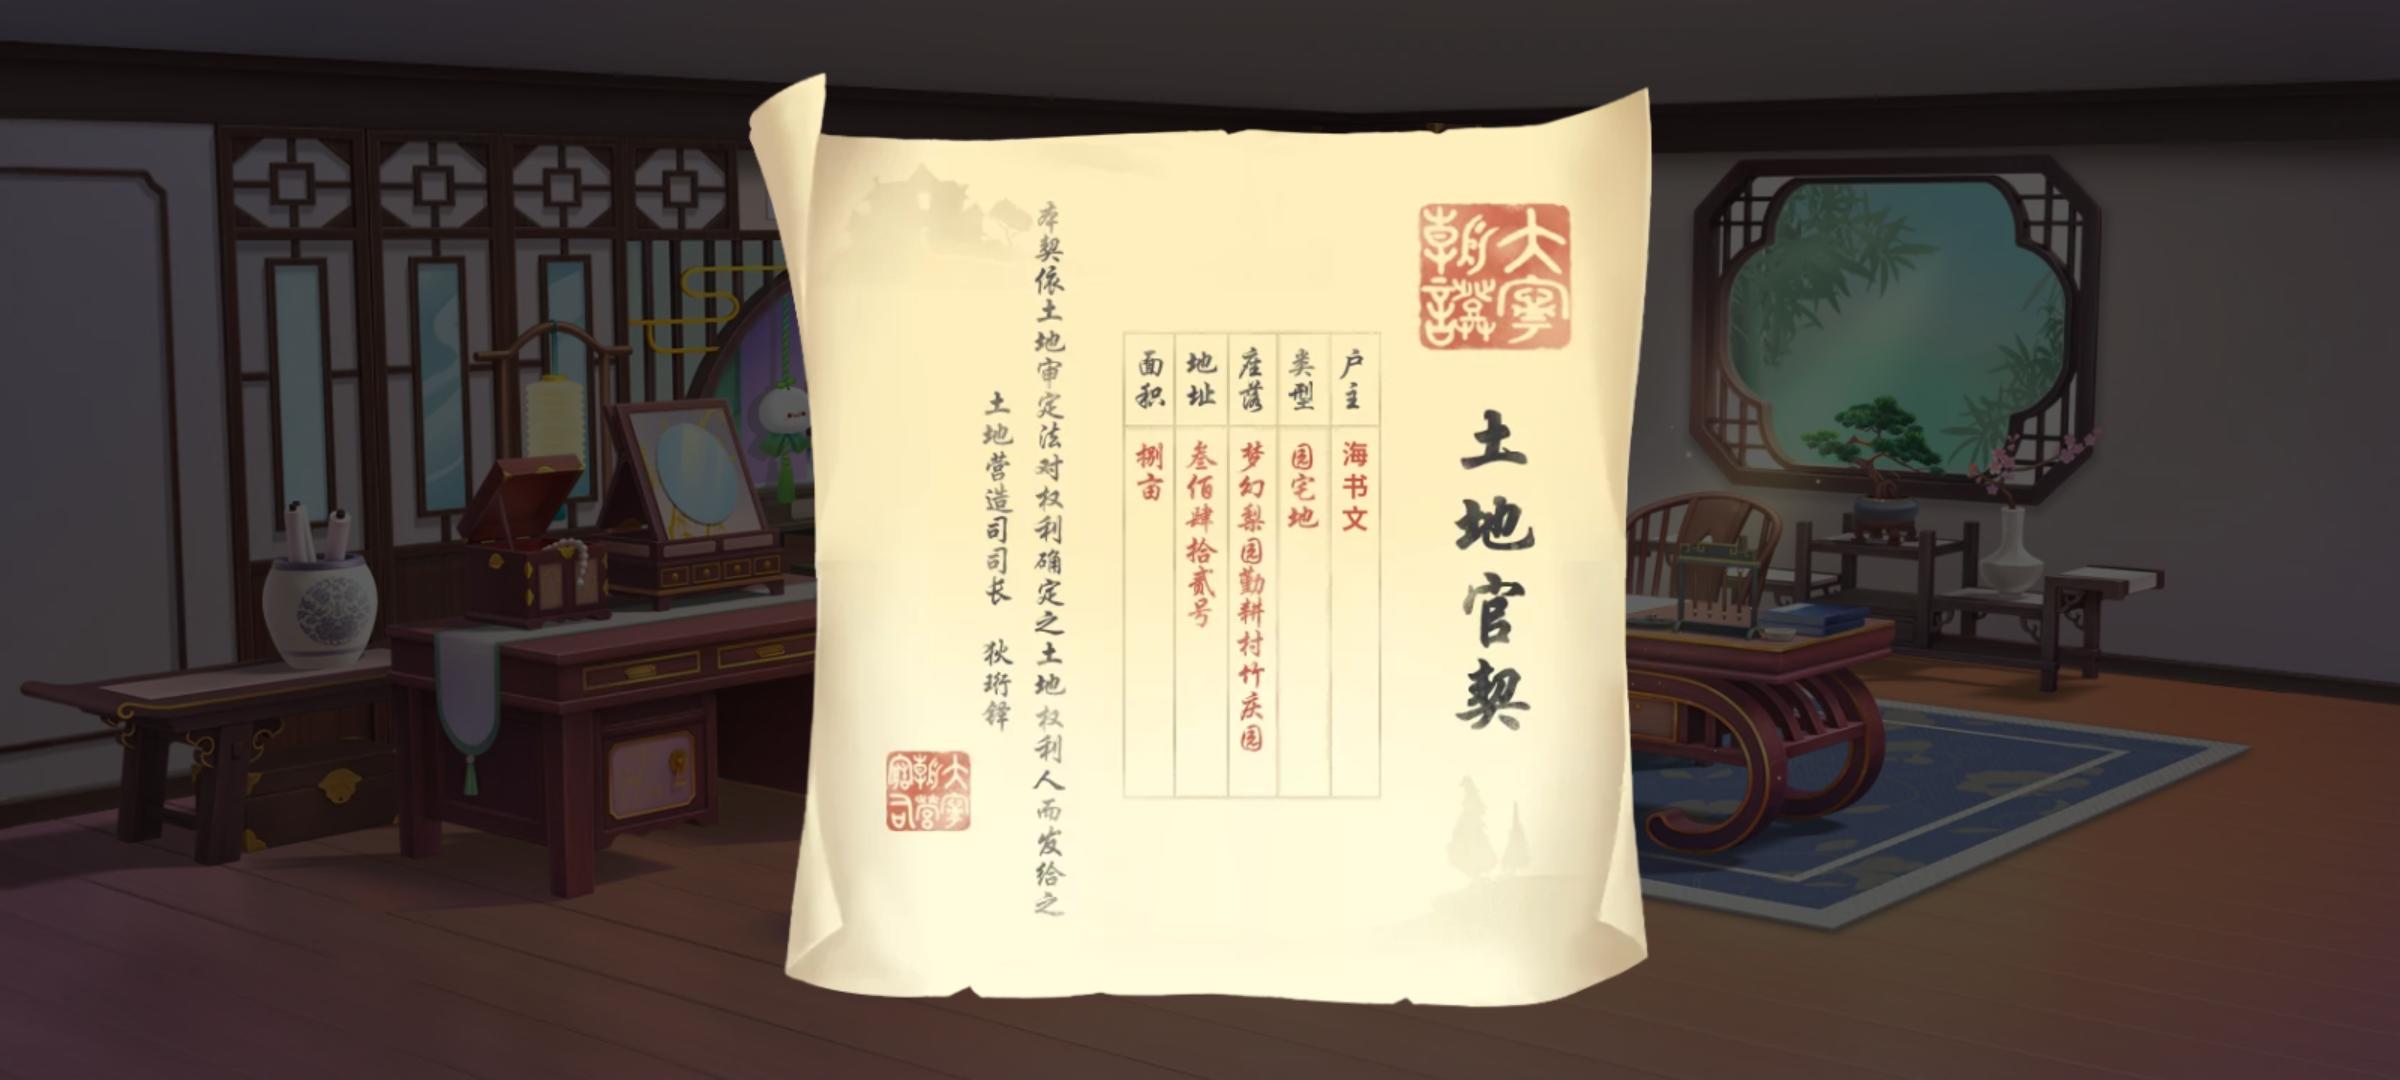 大寧朝證
土地官契
户主 海书文
类型 园宅地
座落 梦幻梨园勤耕村竹庆园
地址 叁佰肆拾贰号
面积 捌亩
本契依土地审定法对权利确定之土地权利人而发给之
土地营造司司长 狄珩铎